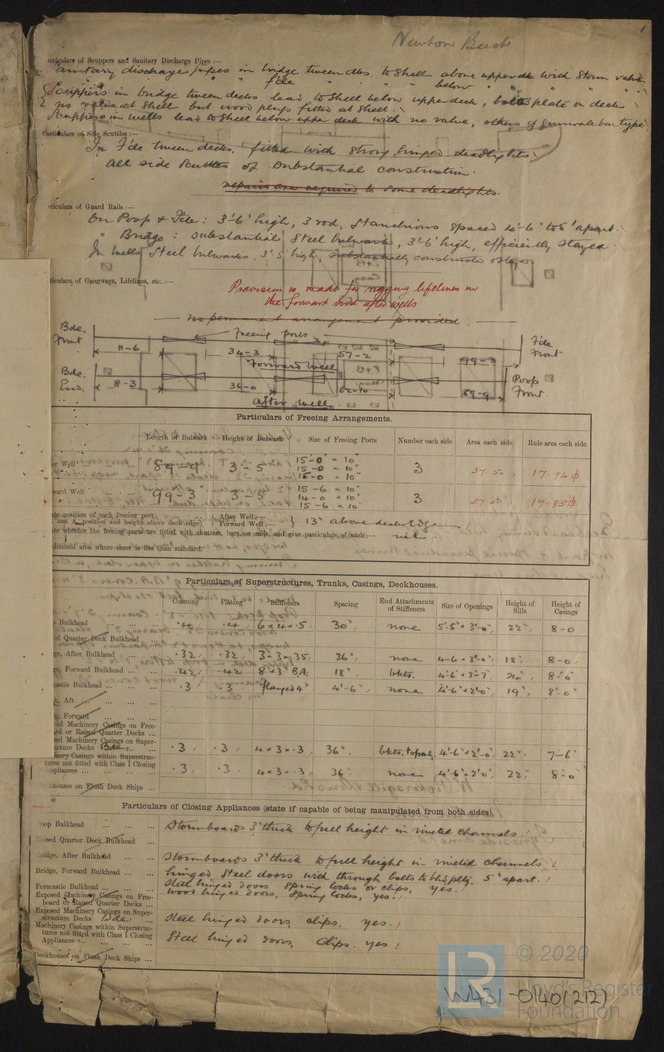 Newton Beech
Particulars of Scuppers and Sanitary Discharge Pipes :—
Sanitary discharge pipes in bridge tween dks. to shell above upper dk with storm valve.
" " " " f'cle " " " below " " " "
Scuppers in bridge tween decks lead to shell below upper deck, plate on deck
& no valve at shell but wood plugs fitted at shell.
Scuppers in wells lead to shell below upper deck with no valve, others of gunwale bar type
Particulars of Side Scuttles :—
In F'cle tween decks, fitted with strong hinged deadlights.
All side scuttles of substantial construction.
repairs are required to some deadlights.
Particulars of Guard Rails :—
On Poop & F'cle : 3'-6" high, 3 rod, stanchions spaced 4'-6" to 5' apart.
" Bridge : substantial steel bulwarks, 3'-6" high, efficiently stayed.
In wells steel bulwarks, 3'-5" high, substantially constructed & stayed
Particulars of Gangways, Lifelines, etc. :—
Provision is made for rigging lifelines in
the forward and after wells
no permanent arrangement provided
Bde. Front
Freezing ports
F'cle Front
11-6
34-3
57-2
99-3
Forward Well
Bde. End.
8-3
36-0
62-10
89-9
Poop Front
After well
Particulars of Freeing Arrangements.
Length of Bulwark Height of Bulwark Size of Freeing Ports Number each side Area each side Rule area each side
Well 89-9 3-5 15-0 × 10" 15-0 × 10" 15-0 × 10" 3 37.50 17.94
Well 99-3 3-5 15-6 × 10" 14-0 × 10" 15-6 × 10" 3 37.50 19.85
position of each freeing port After Well:—
position and height above deck edge) Forward Well :— } 13" above deck edge
whether the freeing ports are fitted with shutters, bars or rails, and give particulars of each:— nil
additional area where sheer is less than standard.
Particulars of Superstructures, Trunks, Casings, Deckhouses.
Coaming Plating Stiffeners Spacing End Attachments of Stiffeners Size of Openings Height of Sills Height of Casings
Bulkhead .42 .42 6 × 4 × .5 30" none 5'-5" × 3'-0" 22" 8-0
Quarter Deck Bulkhead
After Bulkhead .32 .32 3 × 3 × .35 36" none 4-6 × 3'-0" 18" 8-0
Forward Bulkhead .42 .42 8 × 3 B.A. 18" bkts. 4'-6 × 3-7 8-0
Bulkhead .3 .3 flanged 4" 4'-6" none 4'-6 × 2'-0" 19" 8-0
Aft
Forward
Machinery Casings on Freeboard or Raised Quarter Decks
Machinery Casings on Superstructure Decks Bde. .3 .3 4 × 3 × .3 36" 4'-6" × 2'-0" 22" 7-6
Machinery Casings within Superstructures not fitted with Class I Closing Appliances .3 .3 4 × 3 × .3 36 none 4'-6" × 2'-0" 22" 8-0
Deckhouses on Flush Deck Ships
Particulars of Closing Appliances (state if capable of being manipulated from both sides)
Poop Bulkhead Stormboards 3" thick to full height in riveted channels.
Raised Quarter Deck Bulkhead
Bridge, After Bulkhead Stormboards 3" thick to full height in riveted channels.
Bridge, Forward Bulkhead hinged steel doors with through bolts to bhd. pltg. 5" apart.
Forecastle Bulkhead Steel hinged doors spring locks or clips, yes.
wood hinged doors, spring locks, yes.
Exposed Machinery Casings on Freeboard or Raised Quarter Decks
Exposed Machinery Casings on Superstructure Decks Bde. Steel hinged doors, clips. yes.
Machinery Casings within Superstructures not fitted with Class I Closing Appliances Steel hinged doors, Clips. yes
Deckhouses on Flush Deck Ships
© 2020
Lloyd's Register
Foundation
W431-0140(212)